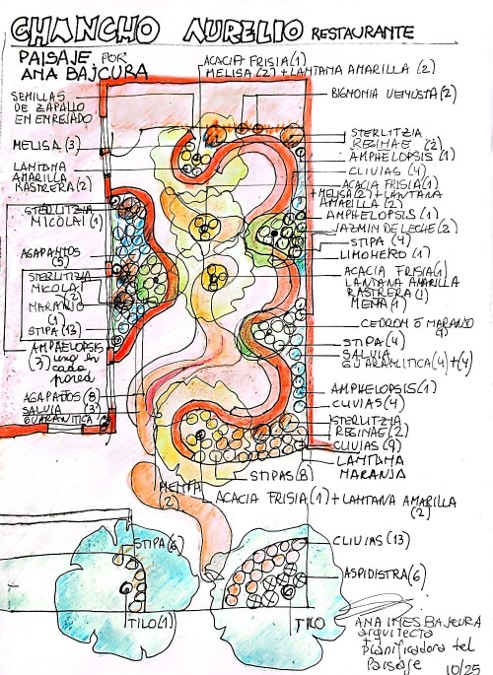 CHANCHO AURELIO RESTAURANTE
PAISAJE POR
ANA BAJCURA
ACACIA FRISIA(1)
MELISA (2) + LANTANA AMARILLA (2)
SEMILLAS
DE ZAPALLO
EN ENREJADO
BIGNONIA VENUSTA(2)
MELISA (3)
LANTANA
AMARILLA
RASTRERA(2)
STERLITZIA
NICOLAI (1)
AGAPANTOS
(5)
STERLITZIA
NICOLAI
(2)
NARANJO
(1)
STIPA (13)
AMPHELOPSIS
(3) uno en
cada
pared
AGAPANTOS(8)
SALVIA (3)
GUARANITICA
STERLITZIA
REGINAE (2)
AMPHELOPSIS (1)
CLIVIAS (4)
ACACIA FRISIA(1)
+ MELISA (2) + LANTANA
AMARILLA (2)
AMPHELOPSIS (1)
JAZMIN DE LECHE (2)
STIPA (4)
LIMONERO (1)
ACACIA FRISIA(1)
LANTANA AMARILLA
RASTRERA (1)
MENTA (1)
CEDRON O NARANJO
(1)
STIPA (4)
SALVIA
GUARANITICA (4)+(4)
AMPHELOPSIS(1)
CLIVIAS (4)
STERLITZIA
REGINAE (2)
CLIVIAS (9)
LANTANA
NARANJA
STIPAS (8)
MENTA
(2)
ACACIA FRISIA (1) + LANTANA AMARILLA
(2)
STIPA (6)
CLIVIAS (13)
ASPIDISTRA (6)
TILO (1)
TILO
ANA INES BAJCURA
arquitecta
planificadora del
Paisaje
10/25